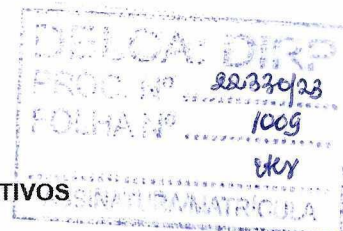 DELCA: DIRP
PROC. Nº 22330/23
FOLHA Nº 1009
TIVOS
ASSINATURA/MATRÍCULA